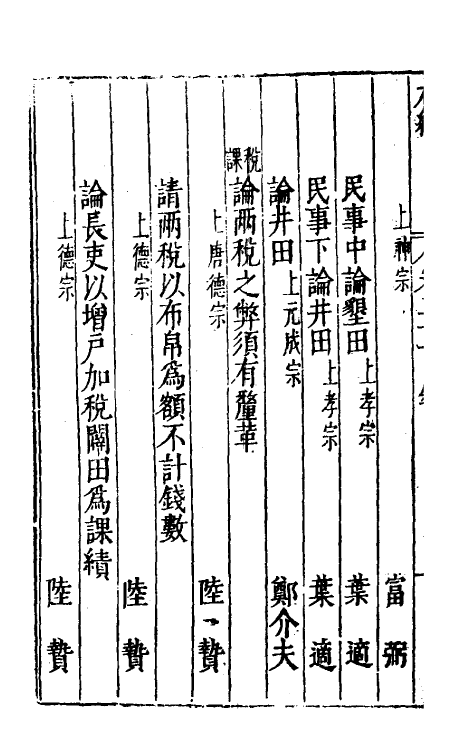 上神宗　富弼
民事中論墾田　上孝宗　葉適
民事下論井田　上孝宗　葉適
論井田　上元成宗　鄭介夫
稅課
論兩稅之弊須有釐革
上唐德宗　陸贄
請兩稅以布帛爲額不計錢數
上德宗　陸贄
論長吏以增戶加稅闢田爲課績
上德宗　陸贄